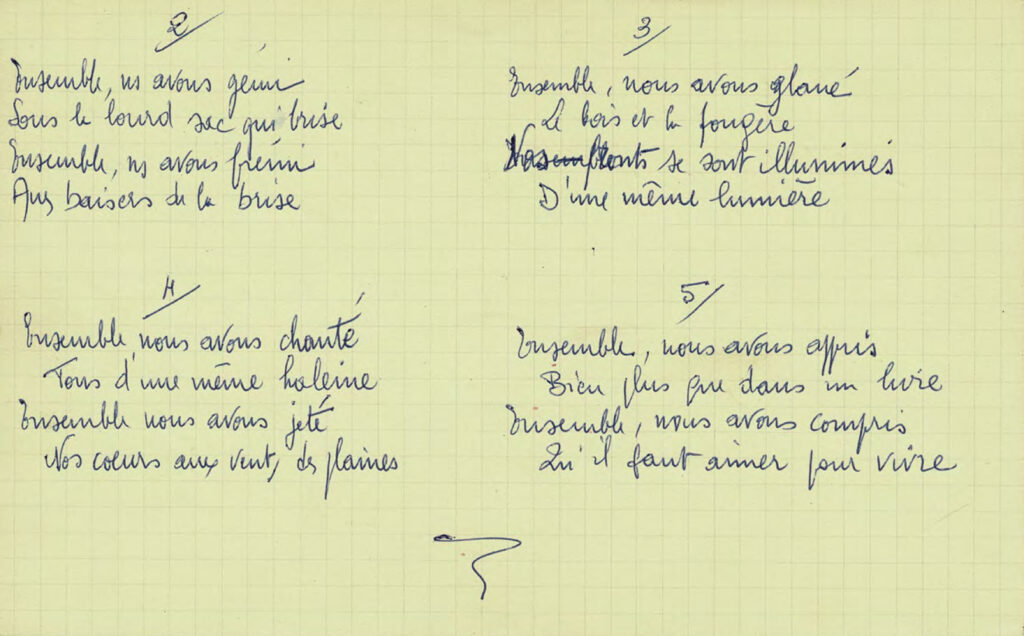 2/
Ensemble, ns avons gémi
Sous le lourd sac qui brise
Ensemble, ns avons frémi
Aux baisers de la brise
3/
Ensemble, nous avons glané
Le bois et la fougère
Nos fronts se sont illuminés
D'une même lumière
4/
Ensemble, nous avons chanté
Tous d'une même haleine
Ensemble nous avons jeté
Nos coeurs aux vents des plaines
5/
Ensemble, nous avons appris
Bien plus que dans un livre
Ensemble, nous avons compris
Qu'il faut aimer pour vivre